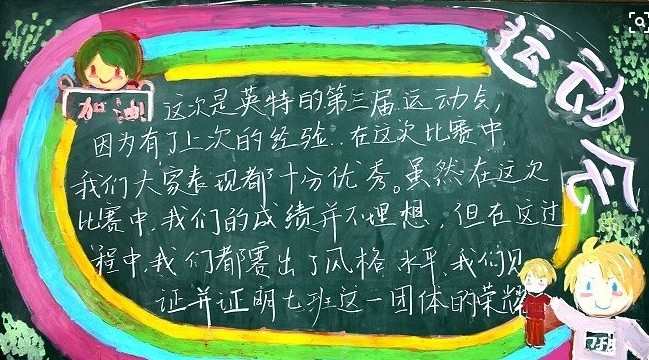 运动会
加油
这次是英特的第三届运动会，
因为有了上次的经验..在这次比赛中，
我们大家表现都十分优秀。虽然在这次
比赛中，我们的成绩并不理想，但在这过
程中，我们都赛出了风格水平，我们见
证并证明七班这一团体的荣耀